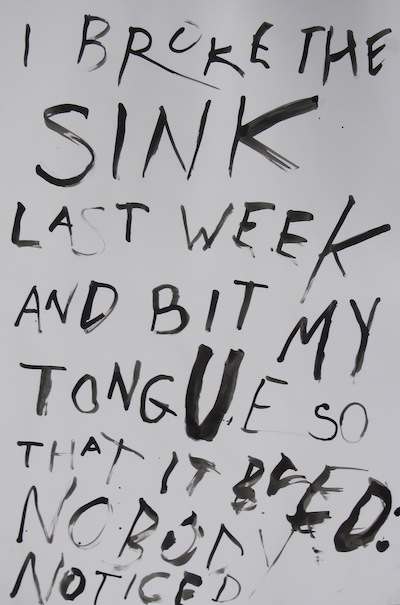 I BROKE THE
SINK
LAST WEEK
AND BIT MY
TONGUE SO
THAT IT BLEED.
NOBODY
NOTICED